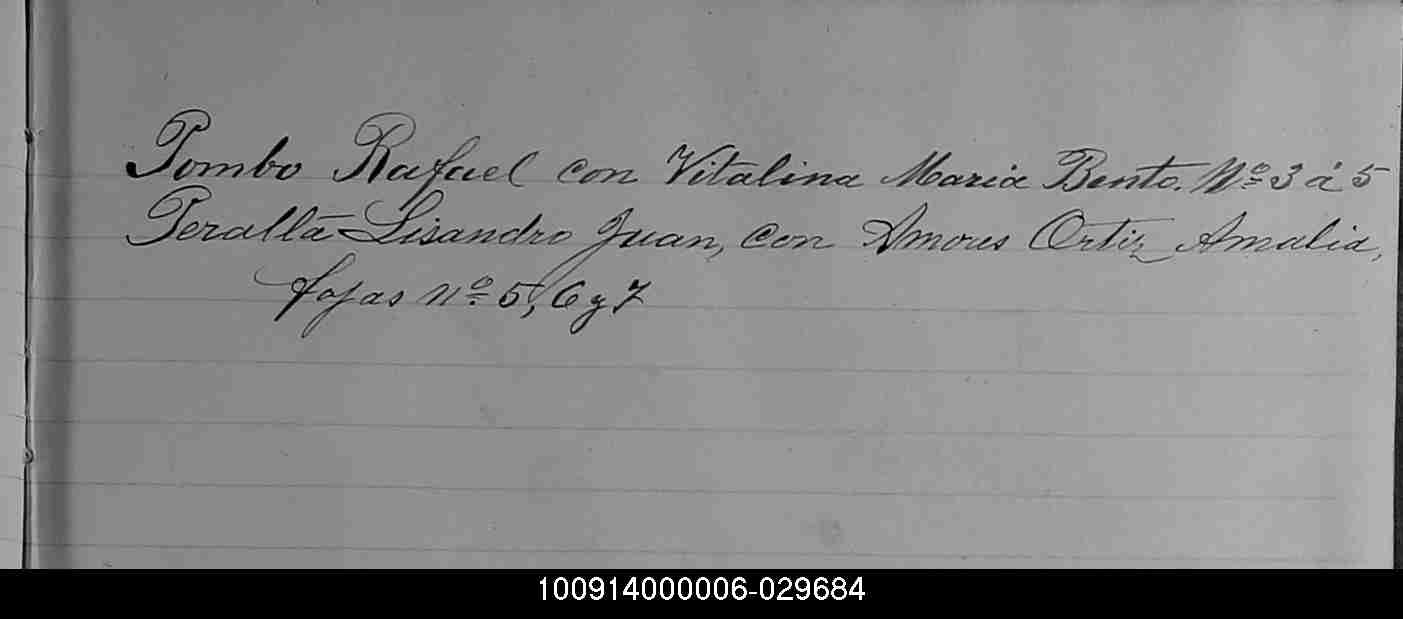 Pombo Rafael con Vitalina Maria Bento. Nº 3 á 5
Peralta Lisandro Juan, con Amores Ortiz Amalia,
fojas Nº 5, 6 y 7
100914000006-029684